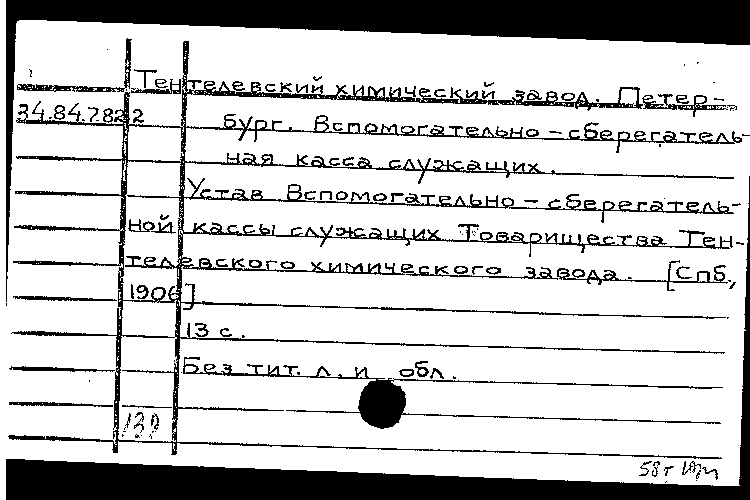 Тентелевский химический завод. Петер-
34.84.7822
бург. Вспомогательно-сберегатель-
ная касса служащих.
Устав Вспомогательно-сберегатель-
ной кассы служащих Товарищества Тен-
телевского химического завода. [Спб,
1906]
13 с.
Без тит. л. и обл.